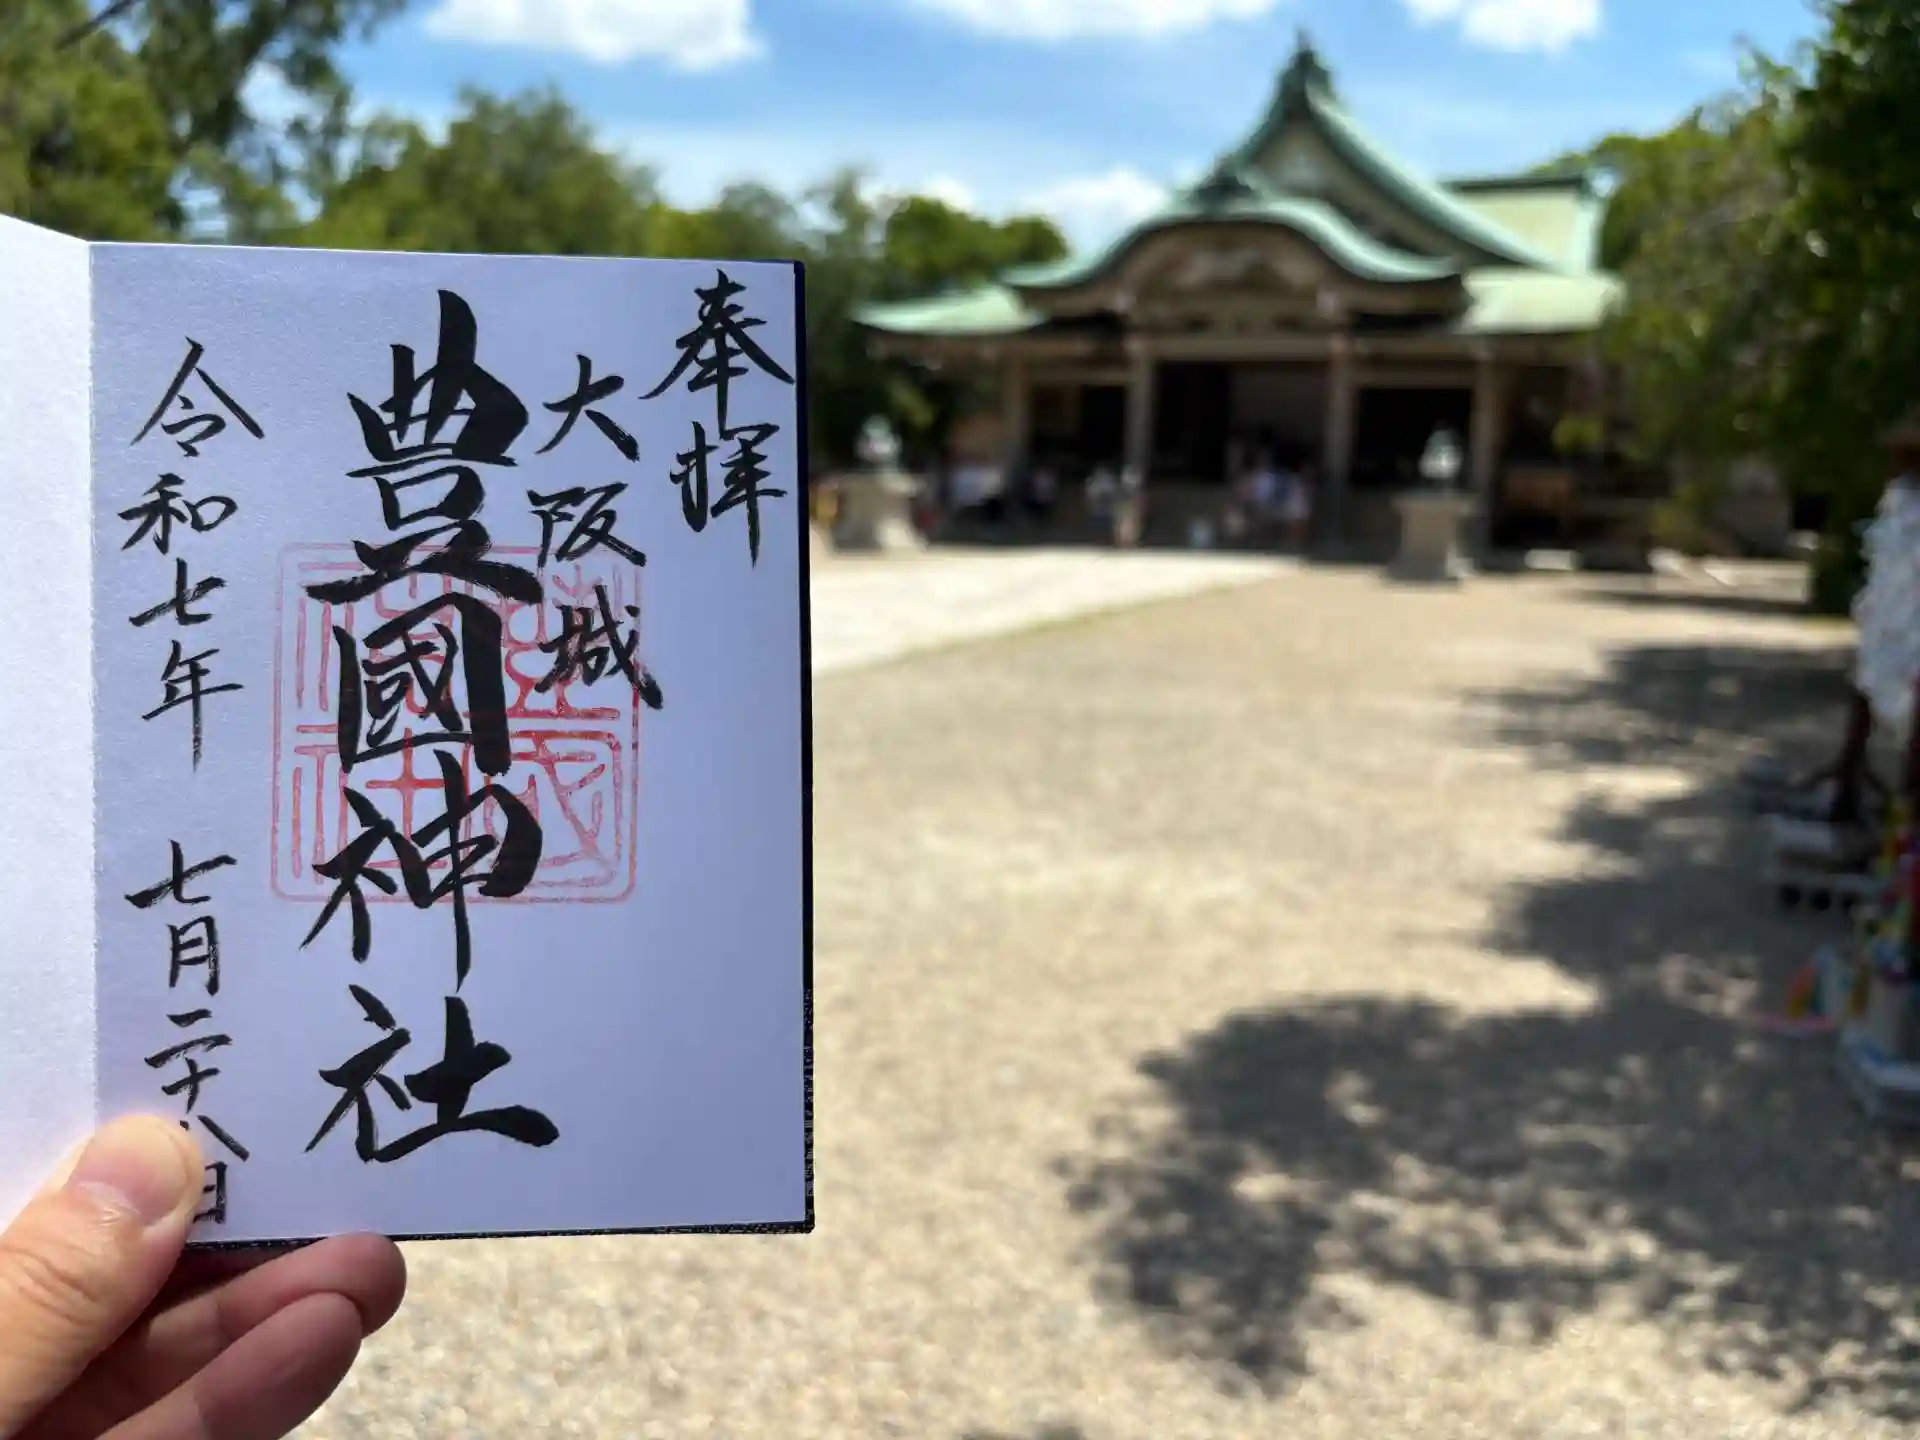 奉拝
大阪城
豊國神社
令和七年 七月二十八日